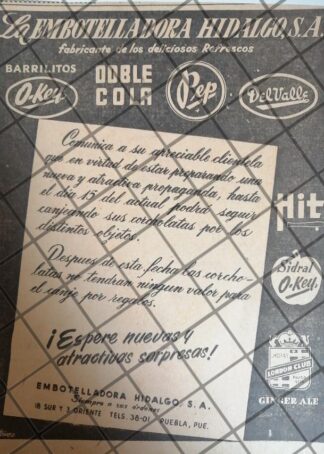 La EMBOTELLADORA HIDALGO, S.A.
fabricante de los deliciosos Refrescos
BARRILITOS
O-Key
DOBLE
COLA
Pep
Del Valle
Comunica a su apreciable clientela
que en virtud de estar preparando una
nueva y atractiva propaganda, hasta
el dia 15 del actual podrá seguir
canjeando sus corcholatas por los
distintos objetos.
Despues de esta fecha las corcho-
latas no tendran ningun valor para
el canje por regalos.
¡Espere nuevas y
atractivas sorpresas!
EMBOTELLADORA HIDALGO, S. A.
Siempre a sus órdenes
18 SUR Y 3 ORIENTE TELS. 38-01 PUEBLA, PUE.
Hit
Sidral
O-Key
LONDON CLUB
GINGER ALE